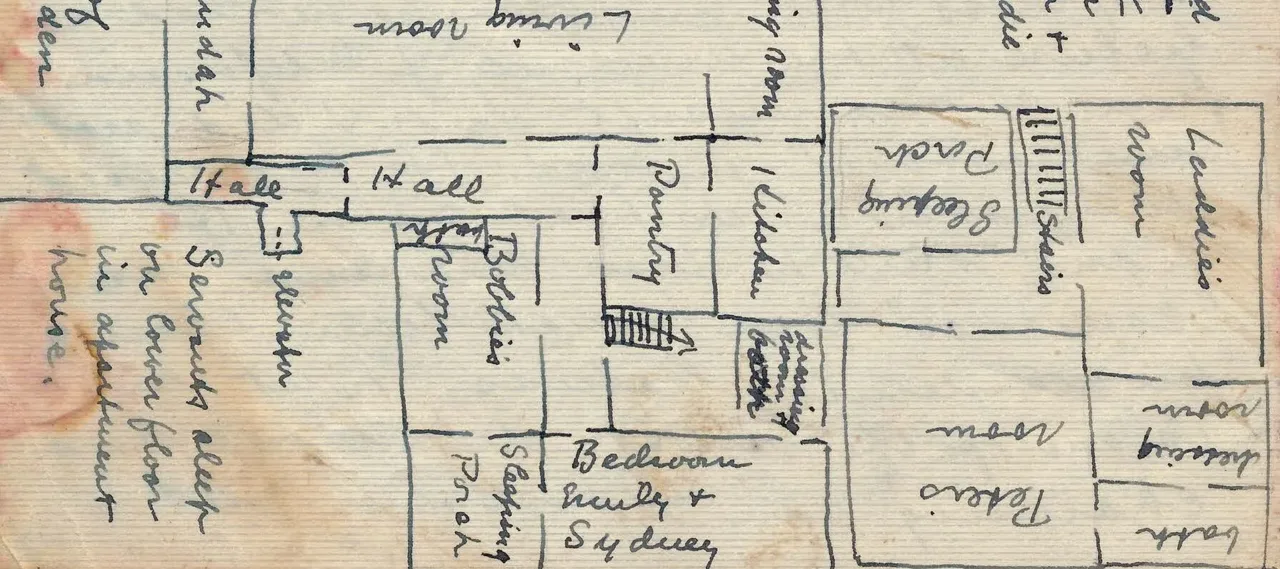 den
ndah
Living
room
ng room
die
Hall
Hall
Pantry
Kitchen
Sleeping
Porch
Stairs
Laddies
room
Servants sleep
on lower floor
in apartment
house.
elevator
bath
Bobbies
room
dressing
room +
bath
Sleeping
Porch
Bedroom
Emily +
Sydney
Peters
room
dressing
room
bath